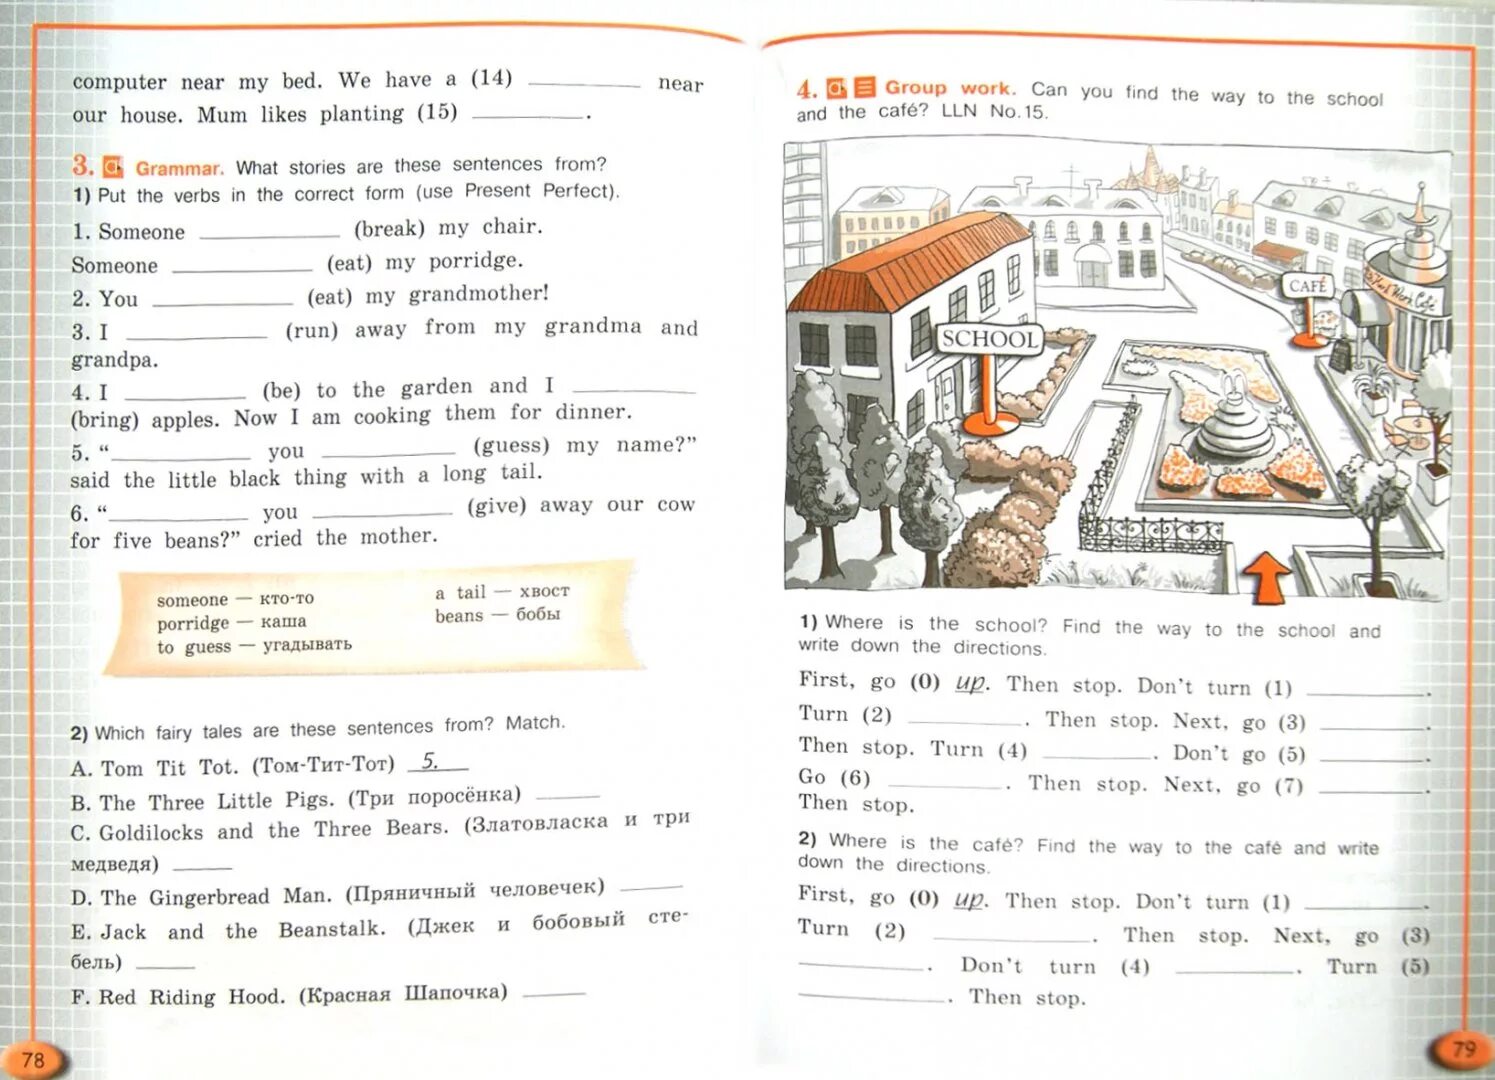 computer near my bed. We have a (14) __________ near
our house. Mum likes planting (15) __________ .
3. Grammar. What stories are these sentences from?
1) Put the verbs in the correct form (use Present Perfect).
1. Someone ____________ (break) my chair.
Someone ____________ (eat) my porridge.
2. You ____________ (eat) my grandmother!
3. I ____________ (run) away from my grandma and
grandpa.
4. I ____________ (be) to the garden and I ____________
(bring) apples. Now I am cooking them for dinner.
5. “____________ you ____________ (guess) my name?”
said the little black thing with a long tail.
6. “____________ you ____________ (give) away our cow
for five beans?” cried the mother.
someone — кто-то
porridge — каша
to guess — угадывать
a tail — хвост
beans — бобы
2) Which fairy tales are these sentences from? Match.
A. Tom Tit Tot. (Том-Тит-Тот) 5.
B. The Three Little Pigs. (Три поросёнка) ______
C. Goldilocks and the Three Bears. (Златовласка и три
медведя) ______
D. The Gingerbread Man. (Пряничный человечек) ______
E. Jack and the Beanstalk. (Джек и бобовый сте-
бель) ______
F. Red Riding Hood. (Красная Шапочка) ______
78
4. Group work. Can you find the way to the school
and the café? LLN No. 15.
SCHOOL
CAFÉ
1) Where is the school? Find the way to the school and
write down the directions.
First, go (0) up. Then stop. Don't turn (1) __________ .
Turn (2) __________ . Then stop. Next, go (3) __________ .
Then stop. Turn (4) __________ . Don't go (5) __________ .
Go (6) __________ . Then stop. Next, go (7) __________ .
Then stop.
2) Where is the café? Find the way to the café and write
down the directions.
First, go (0) up. Then stop. Don't turn (1) __________ .
Turn (2) __________ . Then stop. Next, go (3)
__________ . Don't turn (4) __________ . Turn (5)
__________ . Then stop.
79